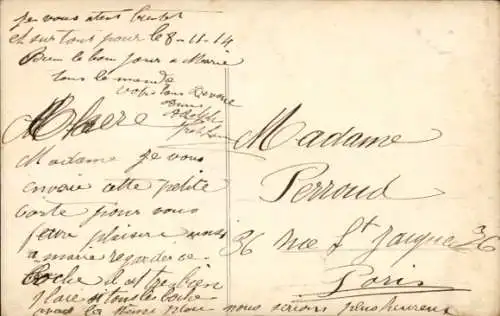 je vous attent bientot
et surtout pour le 8-11-14
Bien le bon jour a Marie
tous le monde
votre tous devoué
ami
Adolph
Chere
Madame je vous
envoie cette petite
carte pour vous
feure plaisire vous
a marie regarder ce
boche il est tres bien
place si tous les boche
la meme place nous serions plus heureux
Madame
Perroud
36 rue St Jacques 36
Paris